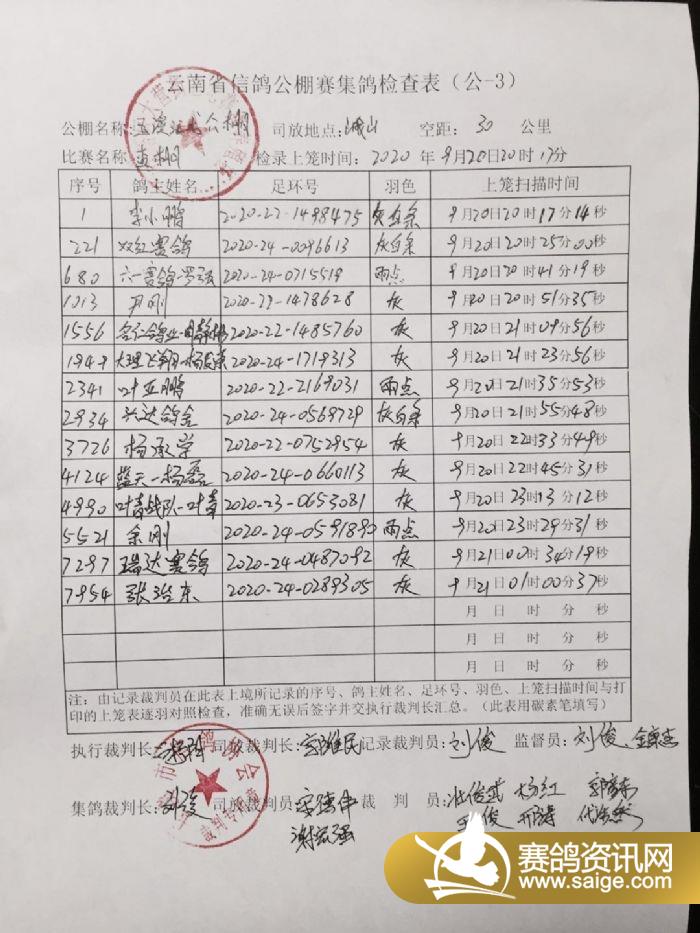 云南省信鸽公棚赛集鸽检查表（公-3）
公棚名称: 公棚 司放地点: 空距: 30 公里
比赛名称: 检录上笼时间: 2020 年 9月20日20时17分
序号 鸽主姓名 足环号 羽色 上笼扫描时间
1 李小鹏 2020-22-1498475 灰白条 9月20日20时17分14秒
221 双红赛鸽 2020-24-0096613 灰白条 9月20日20时25分00秒
680 六一赛鸽-罗强 2020-24-0715519 雨点 9月20日20时41分19秒
1013 尹刚 2020-22-1478628 灰 9月20日20时51分35秒
1556 2020-22-1485760 灰 9月20日21时09分56秒
1949 大理飞翔-杨 2020-24-1719313 灰 9月20日21时23分56秒
2341 叶亚鹏 2020-22-2169031 雨点 9月20日21时35分53秒
2934 兴达鸽舍 2020-24-0569729 灰白条 9月20日21时55分48秒
3726 杨承学 2020-22-0752954 灰 9月20日22时33分49秒
4124 蓝天-杨磊 2020-24-0660113 灰 9月20日22时45分31秒
4990 叶青战队-叶青 2020-23-0653081 灰 9月20日23时13分12秒
5521 余刚 2020-24-0591890 雨点 9月20日23时29分31秒
7297 瑞达赛鸽 2020-24-0487092 灰 9月21日00时34分19秒
7954 张治东 2020-24-0289305 灰 9月21日01时00分37秒
月 日 时 分 秒
月 日 时 分 秒
月 日 时 分 秒
注：由记录裁判员在此表上填所记录的序号、鸽主姓名、足环号、羽色、上笼扫描时间与打
印的上笼表逐羽对照检查，准确无误后签字并交执行裁判长汇总。（此表用碳素笔填写）
执行裁判长: 司放裁判长: 记录裁判员: 刘俊 监督员: 刘俊
集鸽裁判长: 司放裁判员: 李德伟 裁 判 员: 杜俊武 杨红
谢宏强
裁判专用章
赛鸽资讯网
www.saige.com